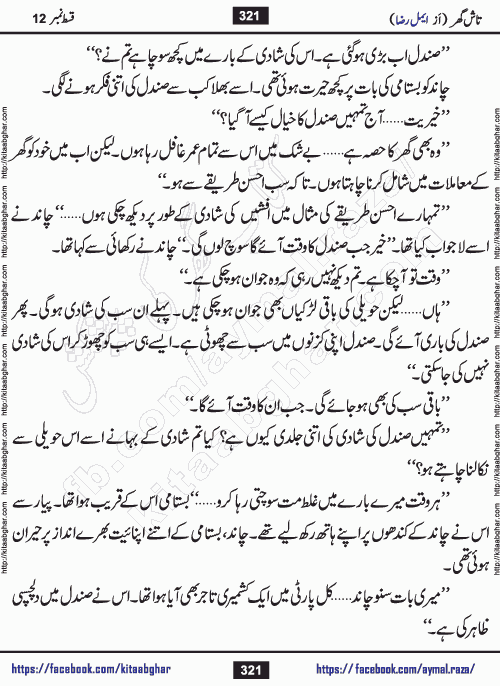 تاش گھر (از ایمل رضا)
321
قسط نمبر 12
’’صندل اب بڑی ہوگئی ہے۔ اس کی شادی کے بارے میں کچھ سوچا ہے تم نے؟‘‘
چاند کو بستامی کی بات پر کچھ حیرت ہوئی تھی۔ اسے بھلا کب سے صندل کی اتنی فکر ہونے لگی۔
’’خیریت......آج تمہیں صندل کا خیال کیسے آ گیا؟‘‘
’’وہ بھی گھر کا حصہ ہے...... بے شک میں اس سے تمام عمر غافل رہا ہوں۔ لیکن اب میں خود کو گھر
کے معاملات میں شامل کرنا چاہتا ہوں۔ تا کہ سب احسن طریقے سے ہو۔‘‘
’’تمہارے احسن طریقے کی مثال میں افشیں کی شادی کے طور پر دیکھ چکی ہوں......‘‘ چاند نے
اسے لاجواب کیا تھا۔ ’’خیر جب صندل کا وقت آئے گا سوچ لوں گی۔‘‘ چاند نے رکھائی سے کہا تھا۔
’’وقت تو آ چکا ہے۔ تم دیکھ نہیں رہی کہ وہ جوان ہوچکی ہے۔‘‘
’’ہاں......لیکن حویلی کی باقی لڑکیاں بھی جوان ہوچکی ہیں۔ پہلے ان سب کی شادی ہوگی۔ پھر
صندل کی باری آئے گی۔ صندل اپنی کزنوں میں سب سے چھوٹی ہے۔ ایسے ہی سب کو چھوڑ کر اس کی شادی
نہیں کی جا سکتی۔‘‘
’’باقی سب کی بھی ہو جائے گی۔ جب ان کا وقت آئے گا۔‘‘
’’تمہیں صندل کی شادی کی اتنی جلدی کیوں ہے؟ کیا تم شادی کے بہانے اسے اس حویلی سے
نکالنا چاہتے ہو؟‘‘
’’ہر وقت میرے بارے میں غلط مت سوچتی رہا کرو......‘‘ بستامی اس کے قریب ہوا تھا۔ پیار سے
اس نے چاند کے کندھوں پر اپنے ہاتھ رکھ لیے تھے۔ چاند، بستامی کے اتنے اپنائیت بھرے انداز پر حیران
ہوئی تھی۔
’’میری بات سنو چاند......کل پارٹی میں ایک کشمیری تاجر بھی آیا ہوا تھا۔ اس نے صندل میں دلچسپی
ظاہر کی ہے۔‘‘
https://facebook.com/kitaabghar
321
https://facebook.com/aymal.raza/
http://kitaabghar.com http://kitaabghar.com http://kitaabghar.com http://kitaabghar.com http://kitaabghar.com
http://kitaabghar.com http://kitaabghar.com http://kitaabghar.com http://kitaabghar.com http://kitaabghar.com
fb.com/aymal.raza
kitaabghar.com